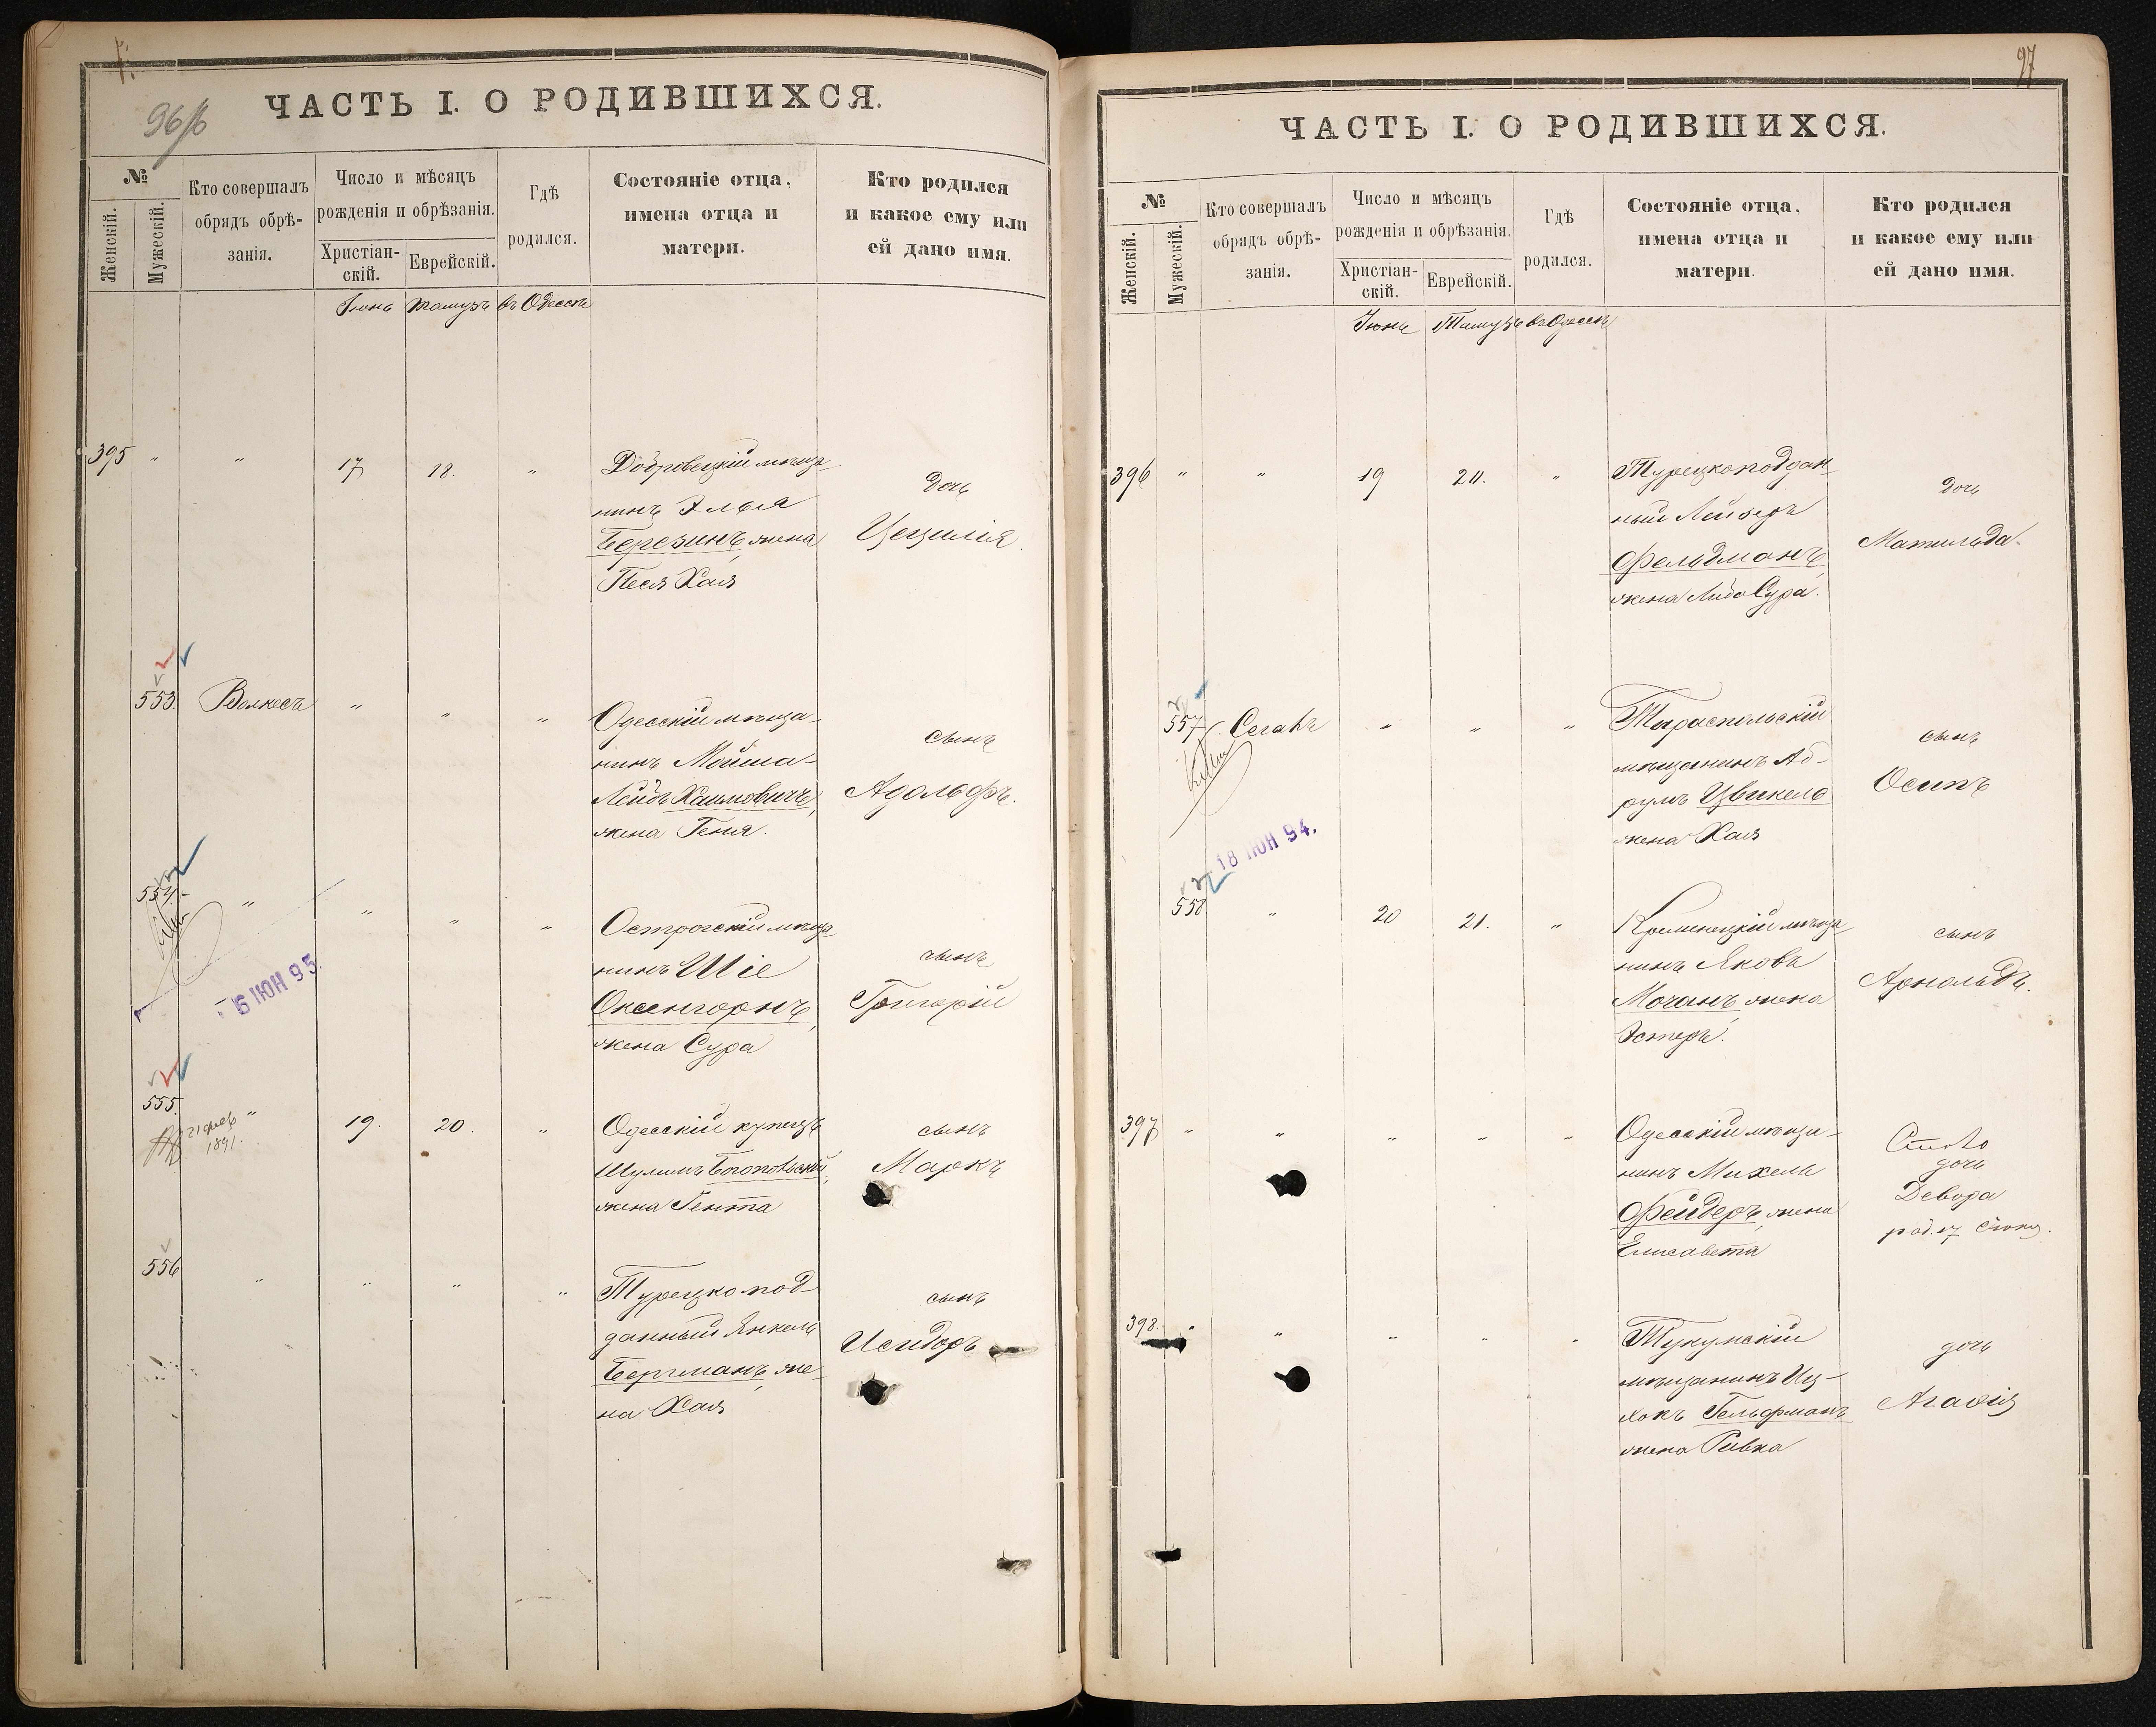 96/б
ЧАСТЬ I. О РОДИВШИХСЯ.
№
Женскій.
Мужескій.
Кто совершалъ
обрядъ обрѣ-
занія.
Число и мѣсяцъ
рожденія и обрѣзанія.
Христіан-
скій.
Еврейскій.
Гдѣ
родился.
Состояніе отца,
имена отца и
матери.
Кто родился
и какое ему или
ей дано имя.
Іюнь Тамузъ въ Одессѣ
395 " " 17 18. "
Добровецкій мѣща-
нинъ Элья
Березинъ, жена
Песя Хая
дочь
Цецилія.
553. Волкесъ " " "
Одесскій мѣща-
нинъ Мойша-
Лейбъ Хаимовичъ,
жена Геня.
сынъ
Адольфъ.
554. " " " "
15 ІЮН 95
Острогскій мѣща-
нинъ Шіе
Оксенгорнъ,
жена Сура
сынъ
Григорій
555. " 19. 20. "
21 фев
1891.
Одесскій купецъ
Шулимъ Богопольскій,
жена Гента
сынъ
Маркъ
556 " " " "
Турецкопод-
данный Янкель
Бергманъ, же-
на Хая
сынъ
Исидоръ
97
ЧАСТЬ I. О РОДИВШИХСЯ.
№
Женскій.
Мужескій.
Кто совершалъ
обрядъ обрѣ-
занія.
Число и мѣсяцъ
рожденія и обрѣзанія.
Христіан-
скій.
Еврейскій.
Гдѣ
родился.
Состояніе отца,
имена отца и
матери.
Кто родился
и какое ему или
ей дано имя.
Іюнь Тамузъ въ Одессѣ
396 " " 19 20. "
Турецкоподдан-
ный Лейзеръ
Фельдманъ,
жена Сура.
дочь
Матильда.
557. Сегалъ " " "
18 ІЮН 94.
Тираспольскій
мѣщанинъ Аб-
румъ Цвикель
жена Хая
сынъ
Осипъ
558. " 20 21. "
Кременецкій мѣща-
нинъ Яковъ
Мочанъ, жена
Эстеръ.
сынъ
Арнольдъ.
397 " " " " "
Одесскій мѣща-
нинъ Михель
Фейдеръ, жена
Елисавета
дочь
Девора
род. 17
398. " " " " "
Тукумскій
мѣщанинъ Иц-
хокъ Гельфманъ
жена Ривка
дочь
Агафія